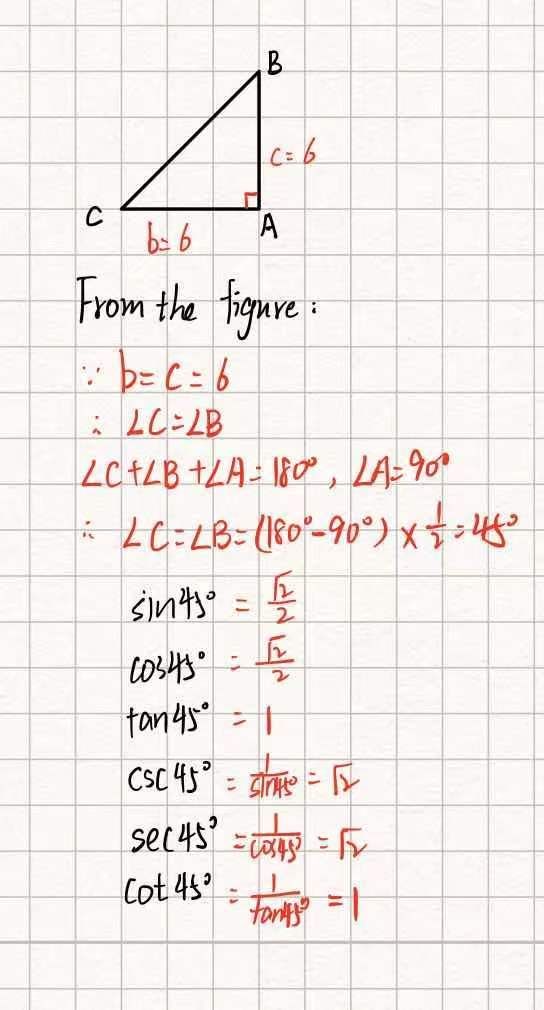 B
c=6
C
A
b=6
From the figure:
∵ b=c=6
∴ ∠C=∠B
∠C+∠B+∠A=180°, ∠A=90°
∴ ∠C=∠B=(180°-90°)×1/2=45°
sin45° = √2/2
cos45° = √2/2
tan45° = 1
csc45° = 1/sin45° = √2
sec45° = 1/cos45° = √2
cot45° = 1/tan45° = 1